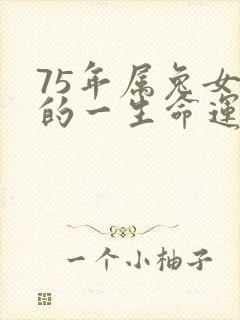 75年属兔女
的一生命運
一个小柚子